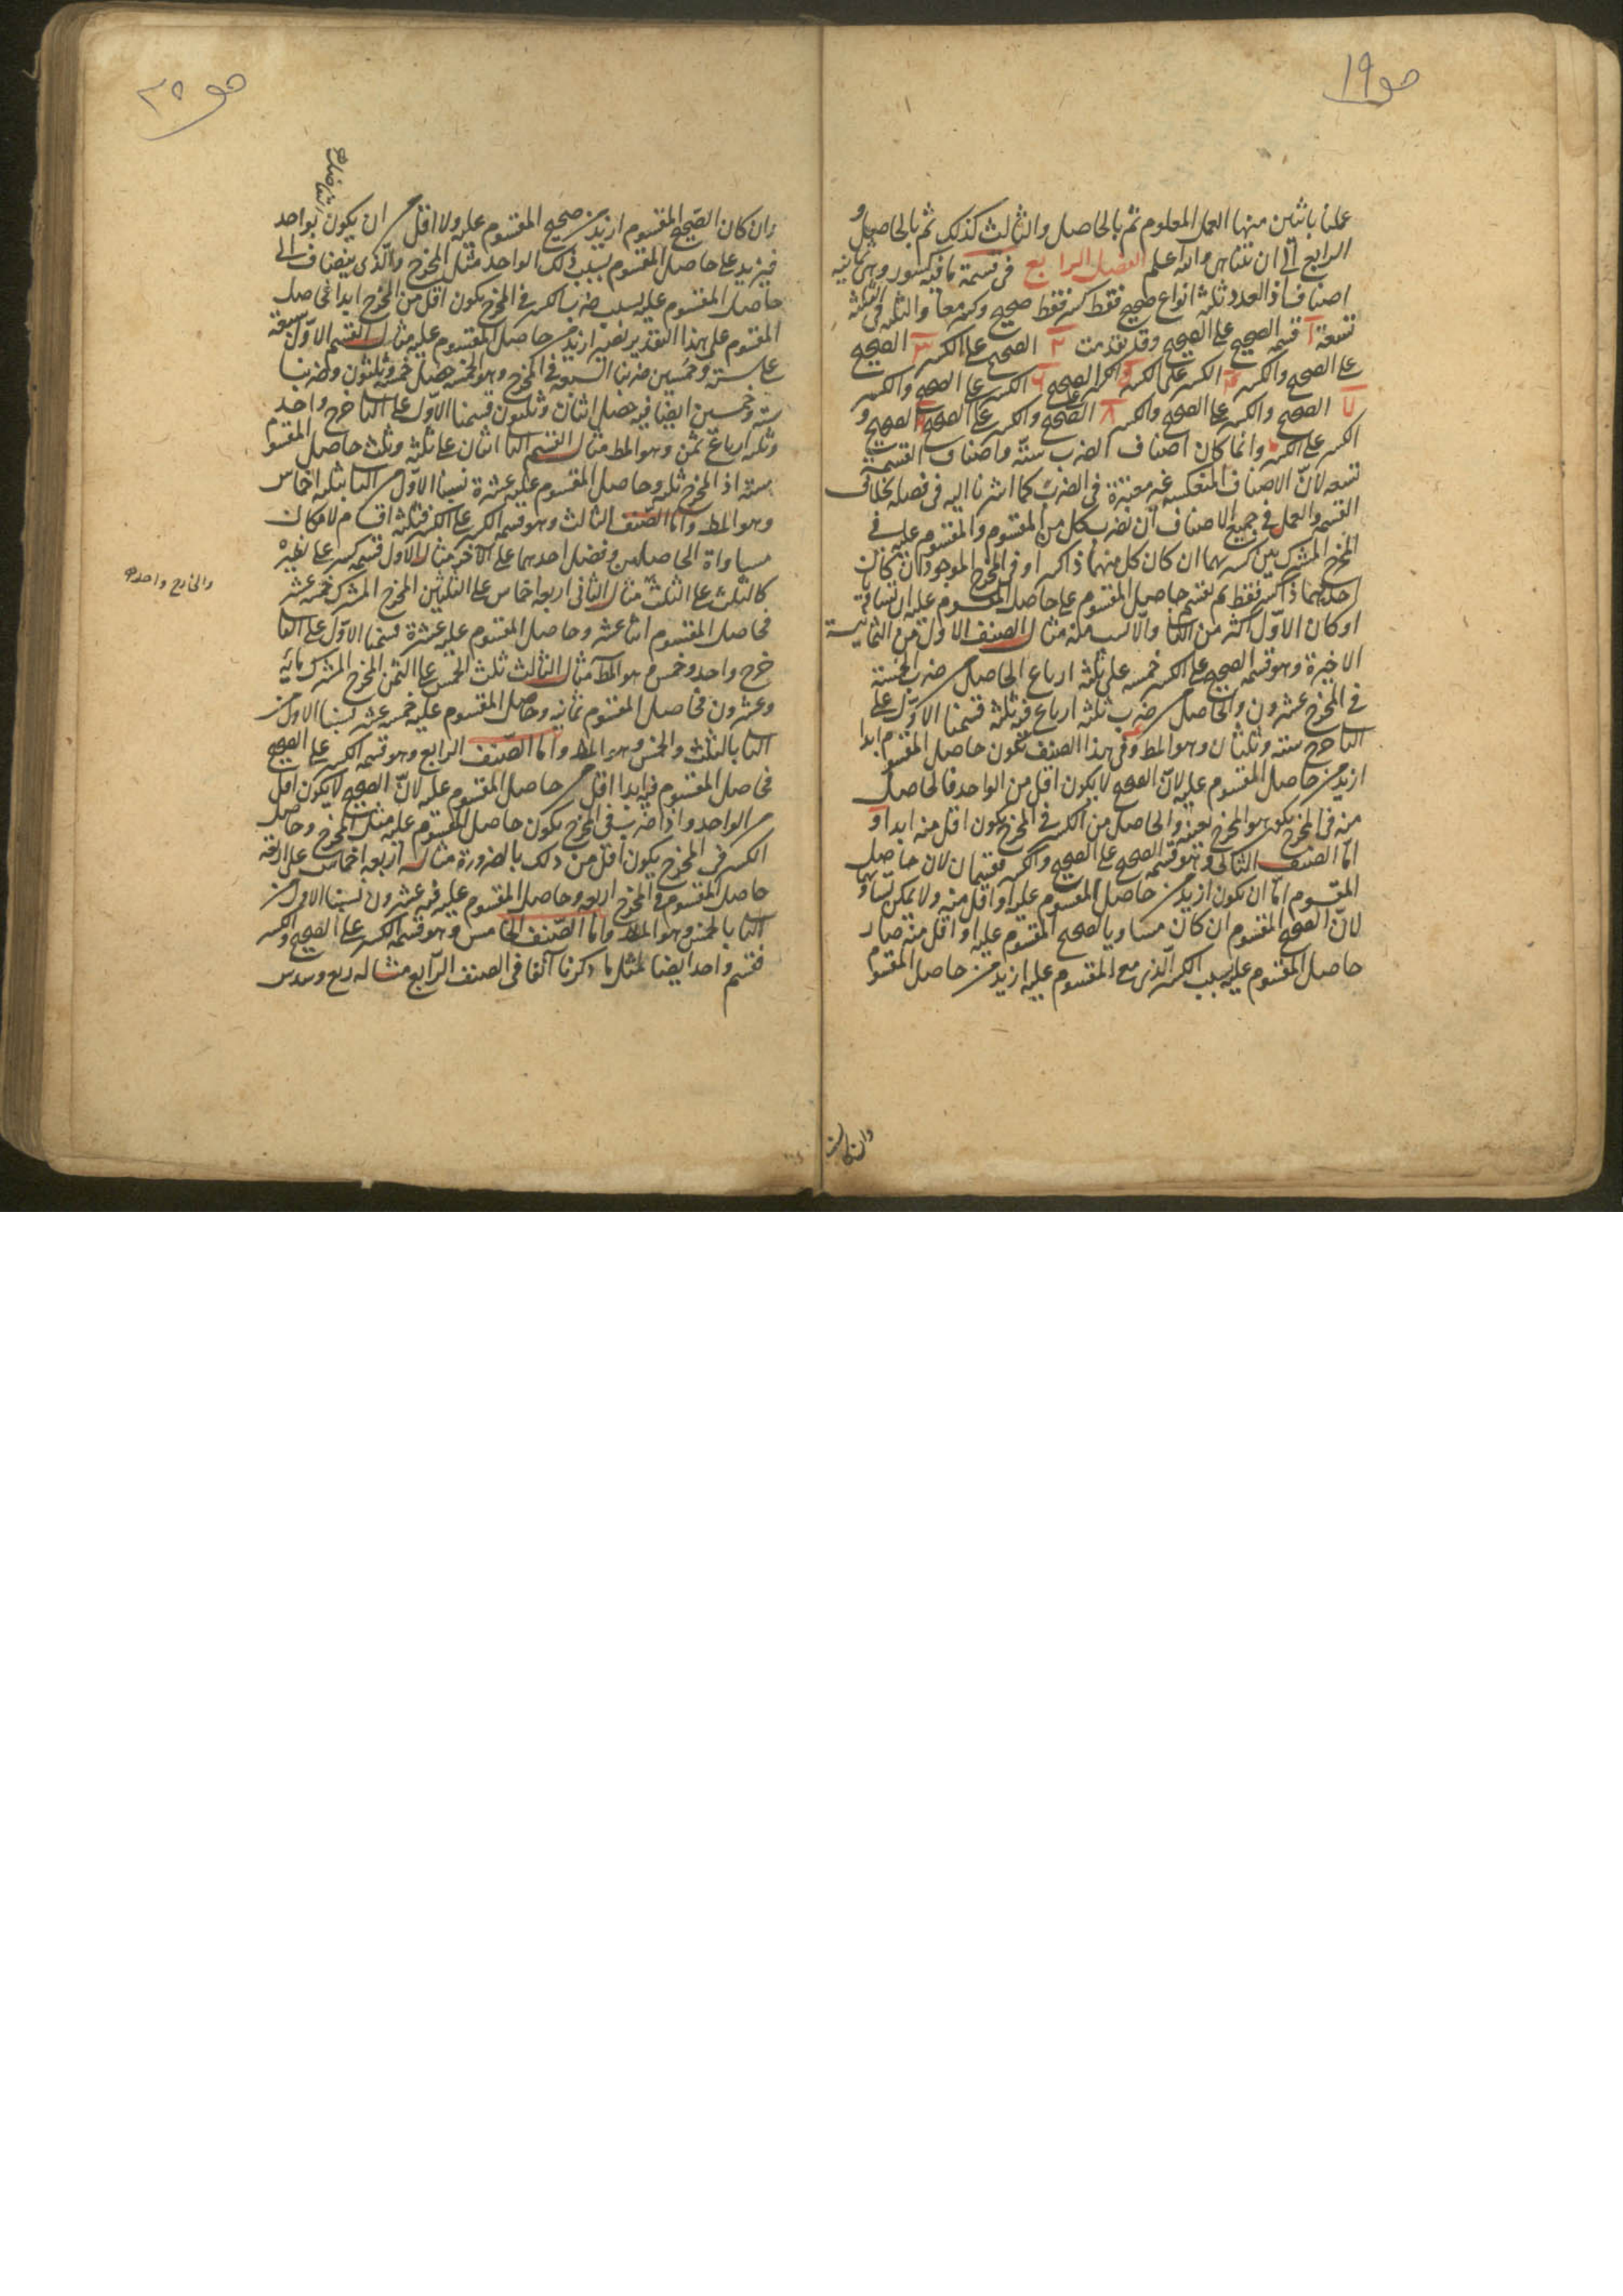 صو ١٩
عملنا باثنين منها العمل المعلوم ثم بالحاصل والثالث كذلك ثم بالحاصل و
الرابع الى ان تتناهى والله اعلم الفصل الرابع فى قسمة ما فيه كسور وهى ثمانية
اصناف اذ العدد ثلثة انواع صحيح فقط كسر فقط صحيح وكسر معا والثلثة فى الثلثة
تسعة ا قسمة الصحيح على الصحيح وقد تقدمت ٢ الصحيح على الكسر ٣ الصحيح
على الصحيح والكسر الكسر على الكسر الكسر على الصحيح ٦ الكسر على الصحيح والكسر
٧ الصحيح والكسر على الصحيح والكسر ٨ الصحيح والكسر على الصحيح الصحيح و
الكسر على الكسر وانما كان اصناف الضرب ستة واصناف القسمة
تسعه لانّ الاصناف المنعكسه غير معتبرة فى الضرب كما اشرنا اليه فى فصله بخلاف
القسمه والعمل فى جميع الاصناف ان نضرب كل من المقسوم والمقسوم عليه فى
المخرج المشترك بين كسريهما ان كان كل منهما ذا كسر او فى المخرج الموجود ان كانت
احديهما ذا كسر فقط ثم نقسم حاصل المقسوم على حاصل المقسوم عليه ان تساويا
او كان الاوّل اكثر من الثا والا نسب منه مثال الصنف الاول من الثمانية
الاخيرة وهو قسمة الصحيح على الكسر خمسه على ثلثة ارباع الحاصل من ضرب الخمسة
فى المخرج عشرون والحاصل من ضرب ثلثه ارباع فيه ثلثة قسمنا الاوّل على
الثا خرج ستة وثلثان وهو المط وفى هذا الصنف تكون حاصل المقسوم ابدا
ازيد من حاصل المقسوم عليه لانّ الصحيح لا يكون اقل من الواحد فالحاصل
منه فى المخرج يكون هو المخرج بعينه والحاصل من الكسر فى المخرج يكون اقل منه ابدا و
امّا الصنف الثانى وهو قسمة الصحيح على الصحيح والكسر فقسمان لان حاصل
المقسوم امّا ان تكون ازيد من حاصل المقسوم عليه او اقل منه ولا يمكن تساويهما
لانّ الصحيح المقسوم ان كان مساويا لصحيح المقسوم عليه او اقل منه صار
حاصل المقسوم عليه بسبب الكسر الّذى مع المقسوم عليه ازيد من حاصل المقسوم
وان كان
وان كان الصّحيح المقسوم ازيد من صحيح المقسوم عليه ولا اقل من ان يكون بواحد
فيزيد على حاصل المقسوم بسبب ذلك الواحد مثل المخرج والّذى ينضاف الى
حاصل المقسوم عليه بسبب ضرب الكسر فى المخرج يكون اقل من المخرج ابدا فحاصل
المقسوم على هذا التقدير يصير ازيد من حاصل المقسوم عليه مثال القسم الاوّل سبعة
على ستة وخمسين ضربنا السبعة فى المخرج وهو الخمسة حصل خمسة وثلثون وضربنا
ستة وخمسين ايضا فيه حصل اثنان وثلثون قسمنا الاوّل على الثا خرج واحد
وثلثه ارباع ثمن وهو المط مثال القسم الثا اثنان على ثلثة وثلث حاصل المقسوم
ستة اذ المخرج ثلثه وحاصل المقسوم عليه عشرة نسبنا الاوّل من الثا بثلثه اخماس
وهو المط وامّا الصّنف الثالث وهو قسمة الكسر على الكسر فثلثة اقسام لامكان
مساواة الحاصلين وفضل احدهما على الآخر مثال الاول قسمة كسر على نظيره
كالثلث على الثلث مثال الثانى اربعه اخماس على الثلثين المخرج المشترك خمسه عشر
فحاصل المقسوم اثنا عشر وحاصل المقسوم عليه عشرة قسمنا الاوّل على الثا
خرج واحد وخمس وهو المط مثال الثالث ثلث الخمس على الثمن المخرج المشترك مائة
وعشرون فحاصل المقسوم ثمانيه وحاصل المقسوم عليه خمسه عشر نسبنا الاوّل من
الثا بالثلث والخمس وهو المط وامّا الصّنف الرابع وهو قسمة الكسر على الصحيح
فحاصل المقسوم فيه ابدا اقل من حاصل المقسوم عليه لانّ الصحيح لا يكون اقل
من الواحد واذا ضرب فى المخرج يكون حاصل المقسوم عليه مثل المخرج وحاصل
الكسر فى المخرج يكون اقل من ذلك بالضرورة مثاله اربعه اخماس على اربعة
حاصل المقسوم فى المخرج اربعه وحاصل المقسوم عليه فيه عشرون نسبنا الاول من
الثا بالخمس وهو المط وامّا الصّنف الخامس وهو قسمة الكسر على الصحيح والكسر
فقسم واحد ايضا لمثل ما ذكرنا آنفا فى الصنف الرّابع مثاله ربع وسدس
والخارج واحد صح